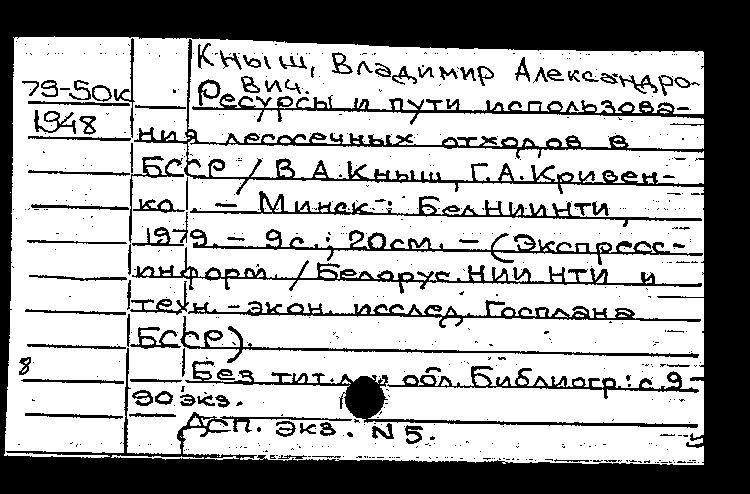 Кныш, Владимир Александро-
вич.
79-50к Ресурсы и пути использова-
1948 ния лесосечных отходов в
БССР / В.А.Кныш, Г.А.Кривен-
ко. – Минск : БелНИИНТИ,
1979. – 9с.; 20см. – (Экспресс-
информ. / Белорус. НИИ НТИ и
техн.-экон. исслед. Госплана
БССР).
8 Без тит.л. и обл. Библиогр.: с.9
90 экз.
Дсп. экз. N 5.